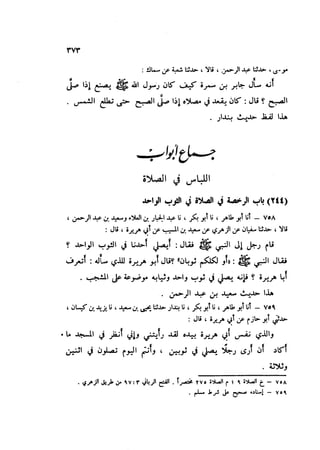 ٣٧٣
موسى، حدثنا عبد الرحمن، قالا، حدثنا شعبة عن سماك:
أنه سأل جابر بن سمرة كيف كان رسول الله ﷺ يصنع إذا صلى
الصبح؟ قال: كان يقعد في مصلاه إذا صلى الصبح حتى تطلع الشمس.
هذا لفظ حديث بندار.
جماع أبواب
اللباس في الصلاة
(٢٤٤) باب الرخصة في الصلاة في الثوب الواحد
٧٥٨ – أنا أبو طاهر، نا أبو بكر، نا عبد الجبار بن العلاء وسعيد بن عبد الرحمن،
قالا، حدثنا سفيان عن الزهري عن سعيد بن المسيب عن أبي هريرة، قال:
قام رجل إلى النبي ﷺ فقال: أيصلي أحدنا في الثوب الواحد؟
فقال النبي ﷺ: «أو لكلكم ثوبان»؟ قال أبو هريرة للذي سأله: أتعرف
أبا هريرة؟ فإنه يصلي في ثوب واحد وثيابه موضوعة على المشجب.
هذا حديث سعيد بن عبد الرحمن.
٧٥٩ – أنا أبو طاهر، نا أبو بكر، نا بندار حدثنا يحيى بن سعيد، نا يزيد بن كيسان،
حدثني أبو حازم عن أبي هريرة، قال:
والذي نفس أبي هريرة بيده لقد رأيتني وإني أنظر في المسجد ما
أكاد أن أرى رجلاً يصلي في ثوبين، وأنتم اليوم تصلون في اثنين
وثلاثة.
٧٥٨ – خ الصلاة ٩؛ م الصلاة ٢٧٥ مختصراً. الفتح الرباني ٣: ٩٧ من طريق الزهري.
٧٥٩ – إسناده صحيح على شرط مسلم.